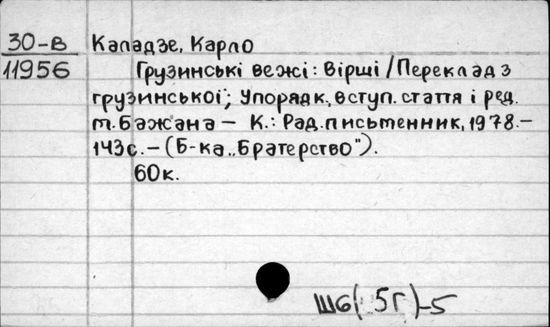 30-В Каладзе, Карло
11956 Грузинські вежі: Вірші / Переклад з
грузинської; Упорядк., вступ. стаття і ред.
М. Бажана – К.: Рад. письменник, 1978.–
143с. – (Б-ка „Братерство").
60к.
Ш6( 5Г)-5